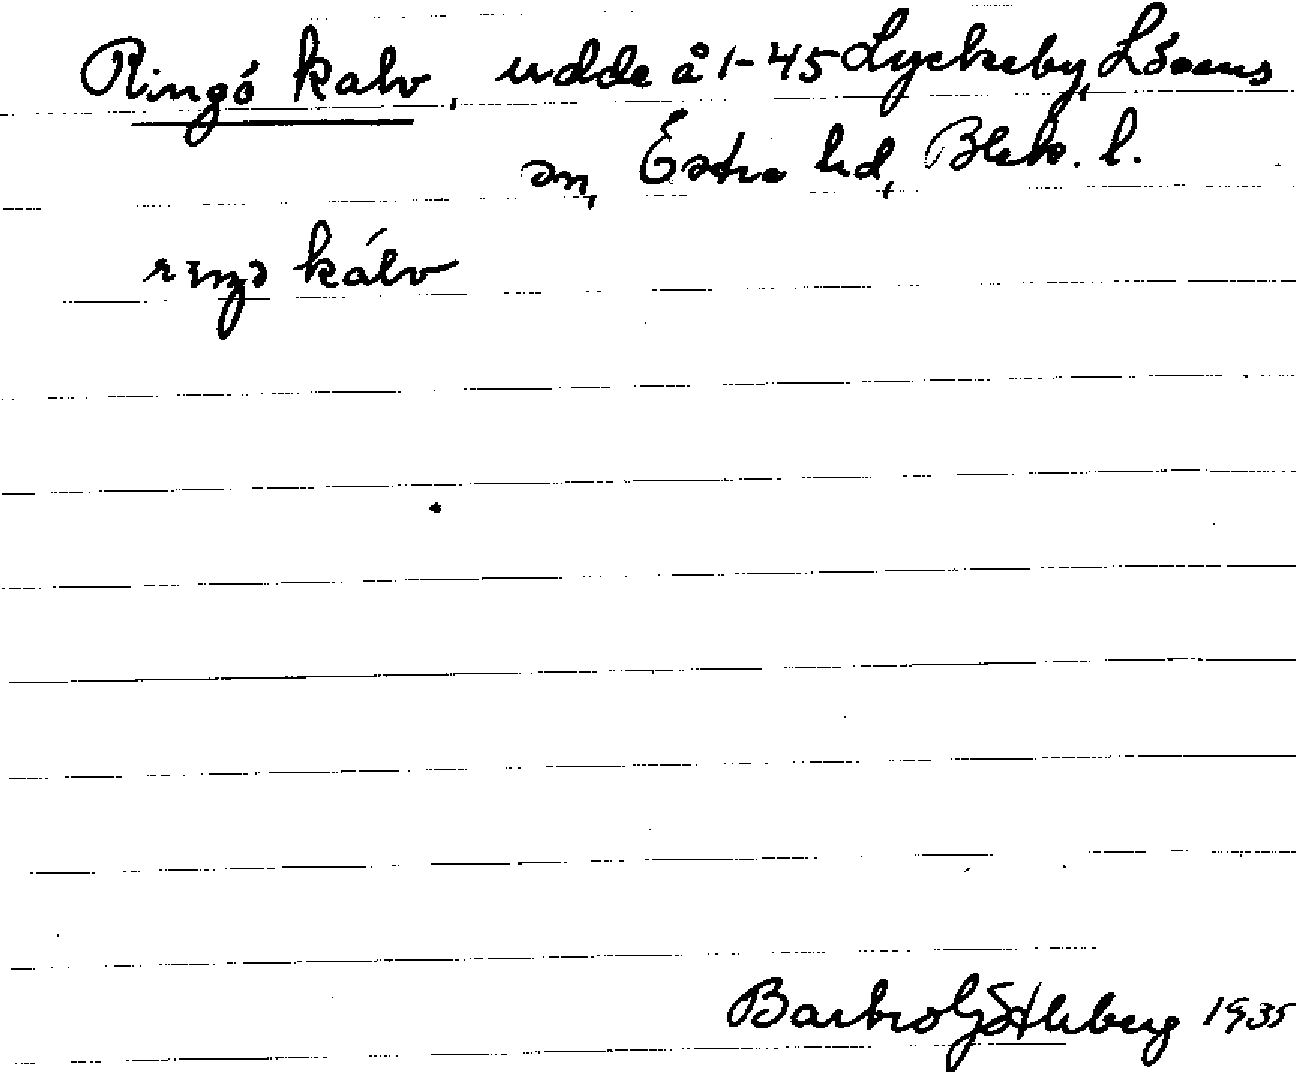 Ringö kalv, udde å 1-45 Lyckeby, Lösens
sn, Östra hd, Blek. l.
kálv
Barbro Götleberg 1935